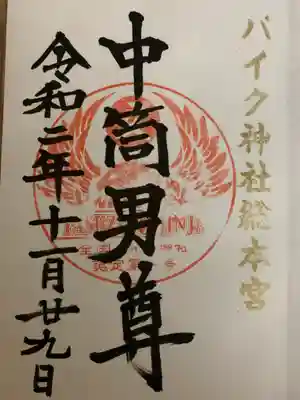 バイク神社総本宮
中筒男尊
令和二年十一月廿九日